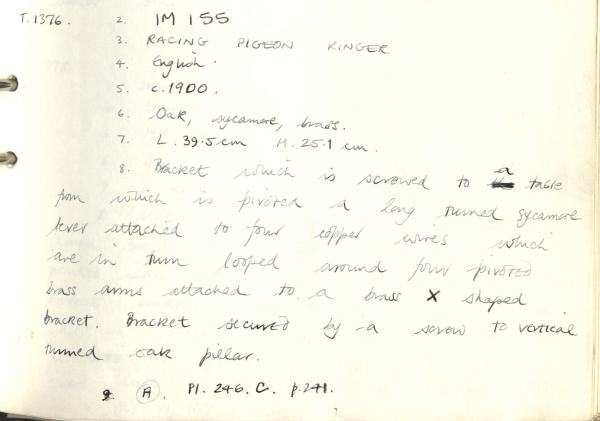 T.1376. 2. IM 155
3. RACING PIGEON RINGER
4. English.
5. c.1900.
6. Oak, sycamore, brass.
7. L. 39.5cm H. 25.1 cm.
8. Bracket which is screwed to a table
from which is pivoted a long turned sycamore
lever attached to four copper wires which
are in turn looped around four pivoted
brass arms attached to a brass X shaped
bracket. Bracket secured by a screw to vertical
turned oak pillar.
9. A. Pl. 246. C. p.241.